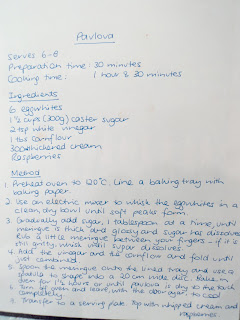 Pavlova
Serves 6-8
Preparation time: 30 minutes
Cooking time: 1 hour & 30 minutes
Ingredients
6 eggwhites
1 ½ cups (300g) caster sugar
2 tsp white vinegar
1 tbs cornflour
300ml thickened cream
Raspberries
Method
1. Preheat oven to 120°C. Line a baking tray with
baking paper.
2. Use an electric mixer to whisk the eggwhites in a
clean, dry bowl until soft peaks form.
3. Gradually add sugar, 1 tablespoon at a time, until
meringue is thick and glossy and sugar has dissolved.
Rub a little meringue between your fingers - if it is
still gritty, whisk until sugar dissolves.
4. Add the vinegar and the cornflour and fold until
just combined.
5. Spoon the meringue onto the lined tray and use a
spatula to shape into a 20 cm wide disc. Bake
for 1½ hours or until pavlova is dry to the touch.
6. Turn off oven and leave, with the door ajar, to cool
completely.
7. Transfer to a serving plate. Top with whipped cream and
raspberries.